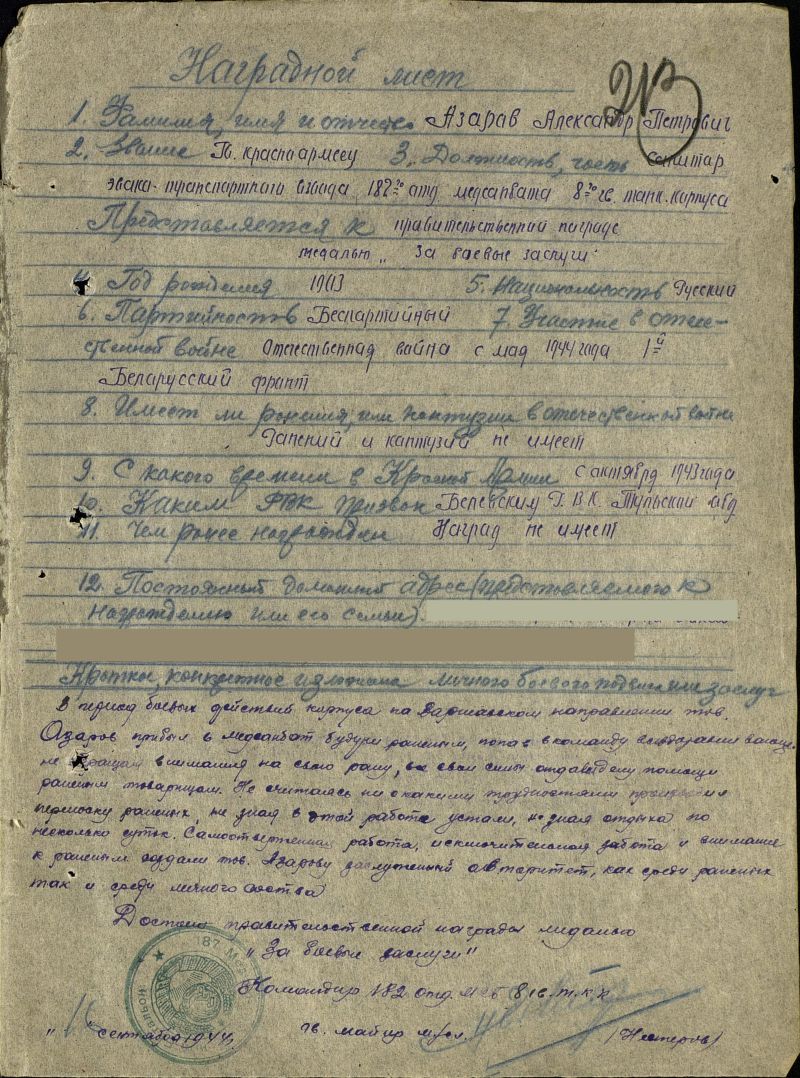 Наградной лист
1. Фамилия, имя и отчество Азарав Александр Петрович
2. Звание Гв. красноармеец 3. Должность, часть санитар
эвака-транспартнага взвода 182го отд. медсанбата 8го гв. танк. корпуса
Представляется к правительственной награде
медалью „За боевые заслуги"
4. Год рождения 1913 5. Национальность Русский
6. Партийность Беспартийный 7. Участие в отече-
ственной войне Отечественная вайна с мая 1944 года 1й
Беларусский франт
8. Имеет ли ранения, или контузии в отечественной войне
Ранений и кантузий не имеет
9. С какого времени в Красной Армии с октября 1943 года
10. Каким РВК призван Белевским Р.В.К. Тульской абл
11. Чем ранее награжден Наград не имеет
12. Постоянный домашний адрес (представляемого к
награждению или его семьи)
Краткое, конкретное изложение личного боевого подвига или заслуг
В период боевых действий корпуса на Варшавском направлении тов.
Азаров прибыл в медсанбат будучи раненым, попав в команду
не обращая внимания на свою рану, все свои силы отдавал делу помощи
раненым товарищам. Не считаясь ни с какими трудностями производил
переноску раненых, не зная в этой работе устали, не зная отдыха по
несколько суток. Самоотверженная работа, исключительная забота и внимание
к раненым создали тов. Азарову заслуженный авторитет, как среди раненых
так и среди личного состава
Достоин правительственной награды медалью
„За боевые заслуги"
Командир 182 отд. мсб 8 гв. т.к.к
гв. майор м/сл. (Нестеров)
„16" сентября 1944г.